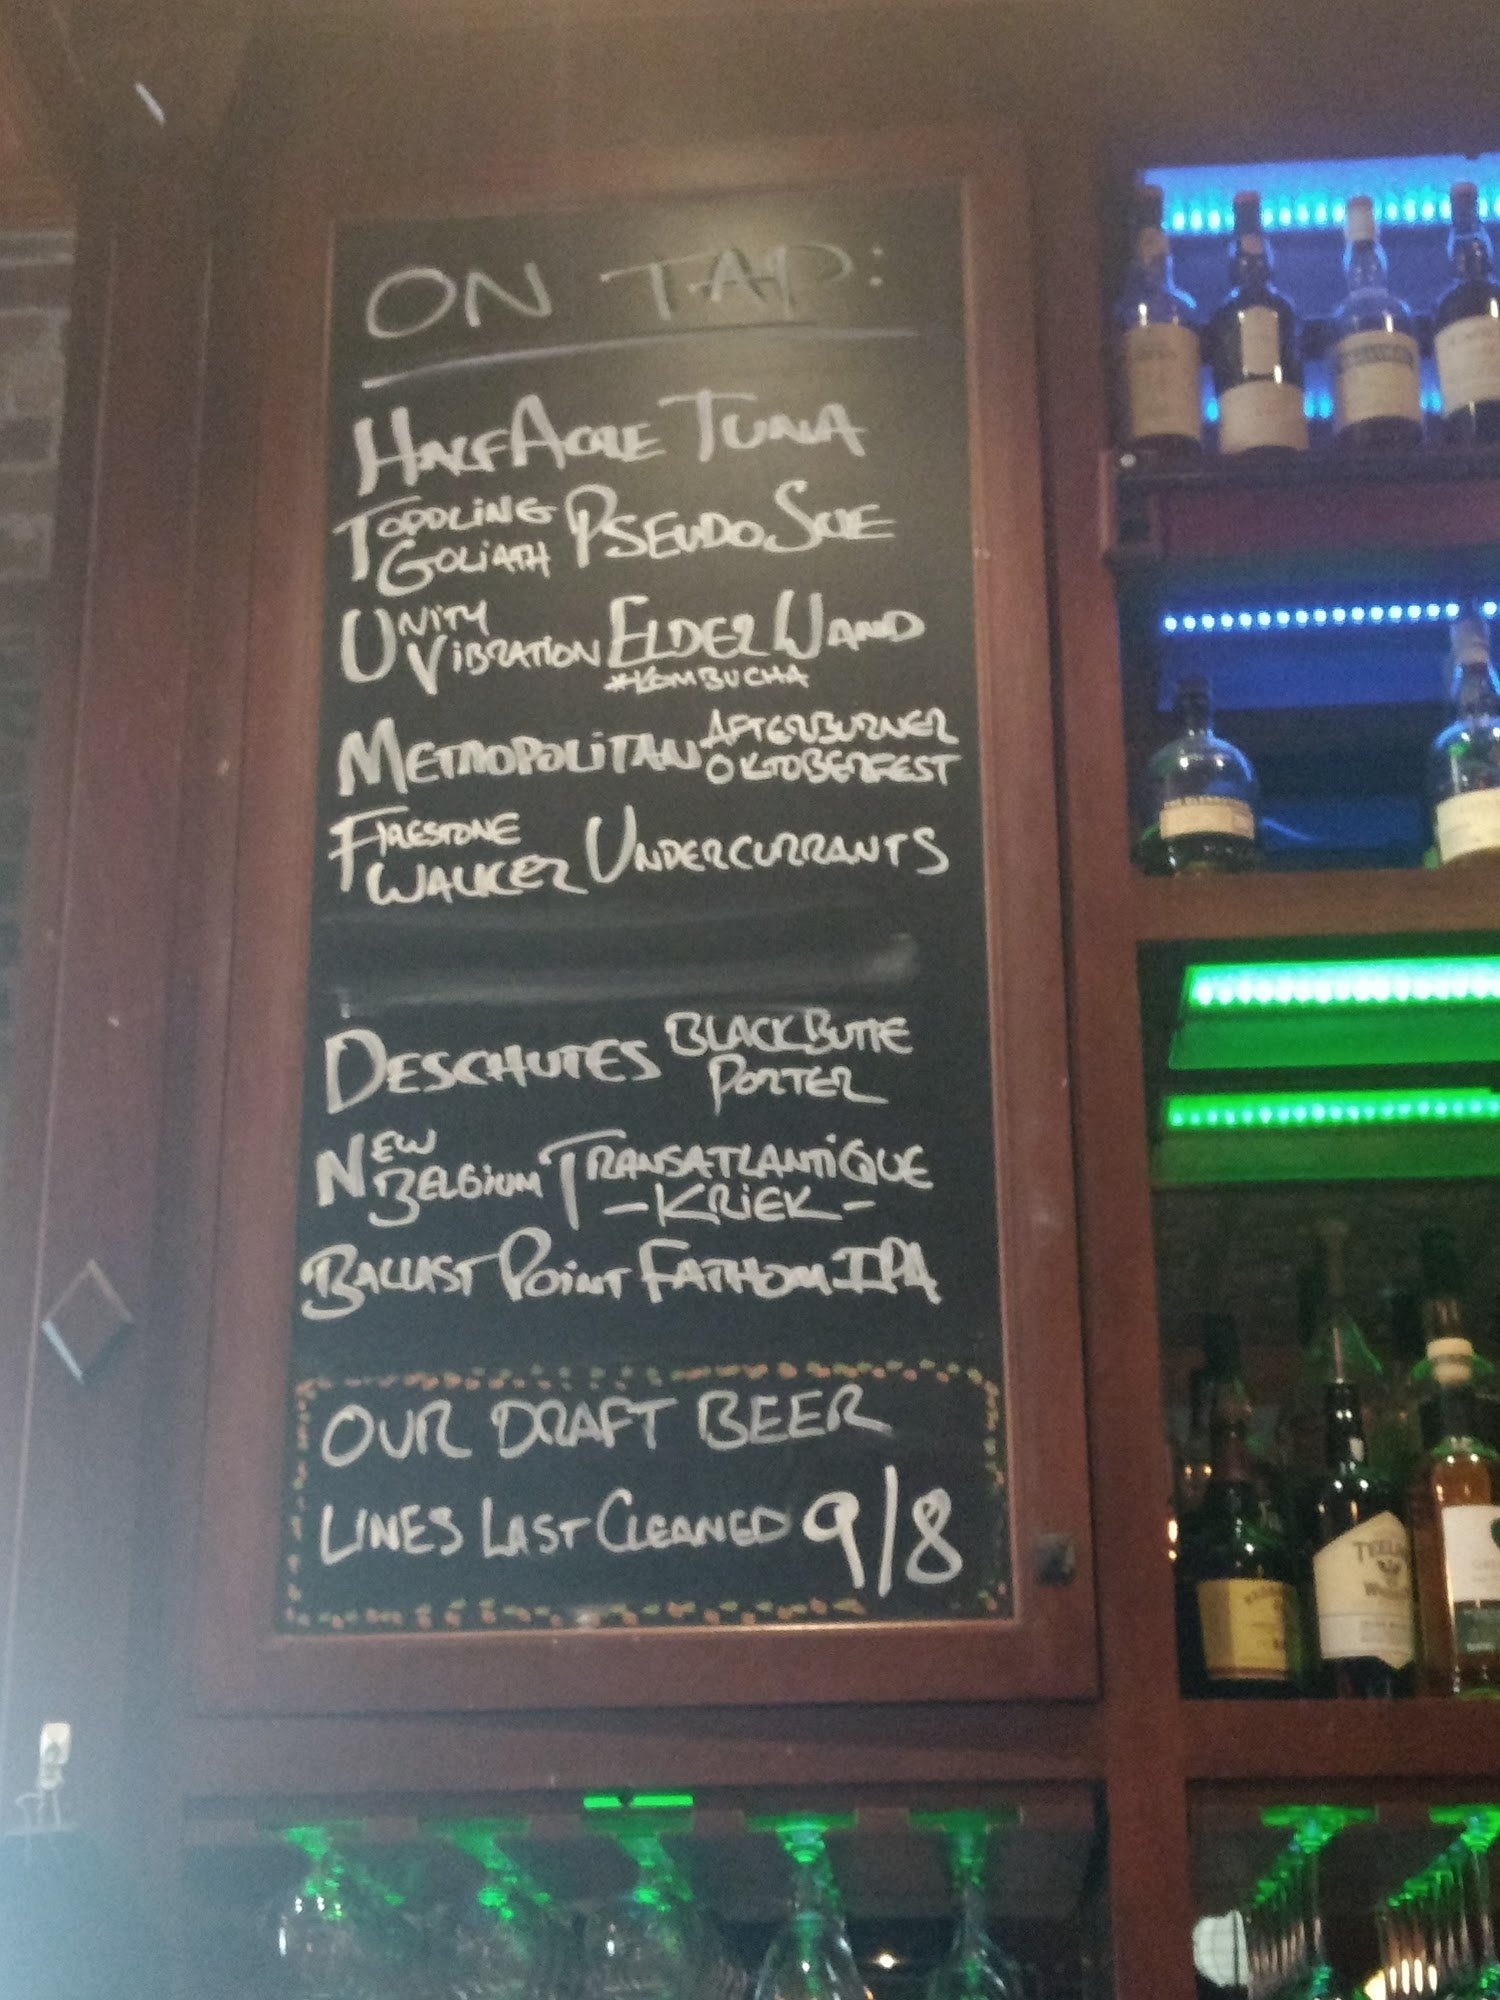 ON TAP:
HALF ACRE TUNA
TOPPLING GOLIATH PSEUDO SUE
UNITY VIBRATION ELDER WAND
*KOMBUCHA
METROPOLITAN AFTERBURNER OKTOBERFEST
FIRESTONE WALKER UNDERCURRANTS
DESCHUTES BLACK BUTTE PORTER
NEW BELGIUM TRANSATLANTIQUE
-KRIEK-
BALLAST POINT FATHOM IPA
OUR DRAFT BEER
LINES LAST CLEANED 9/8